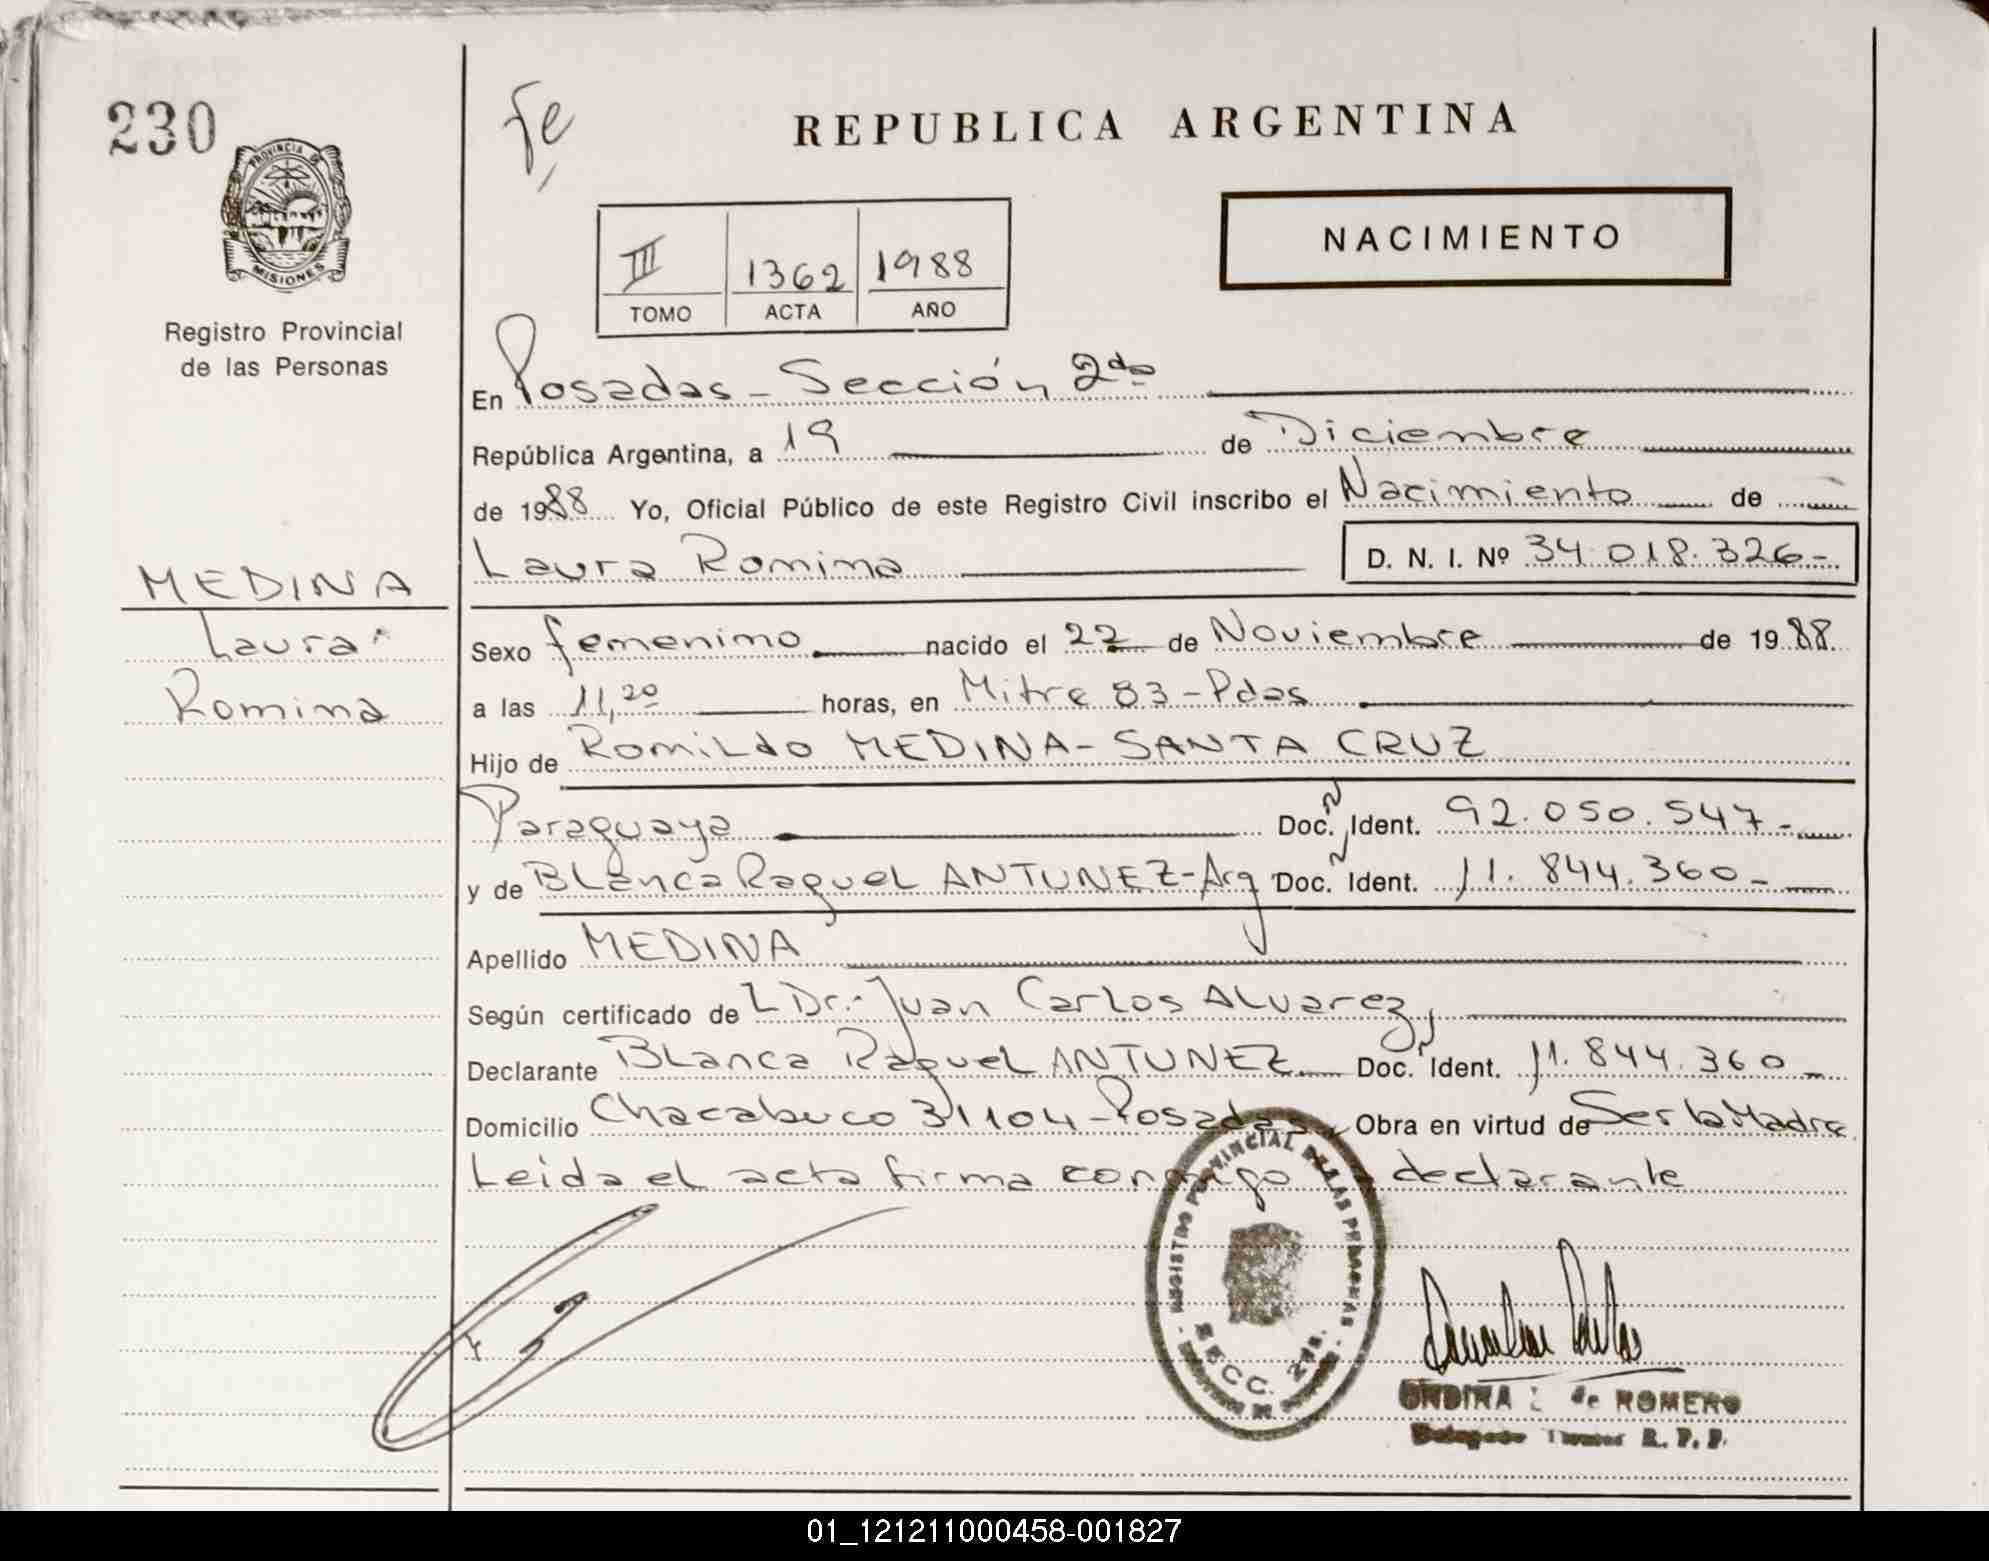 230
fe
REPUBLICA ARGENTINA
PROVINCIA DE
MISIONES
Registro Provincial
de las Personas
III 1362 1988
TOMO ACTA AÑO
NACIMIENTO
En Posadas - Sección 2da
República Argentina, a 19 de Diciembre
de 1988 Yo, Oficial Público de este Registro Civil inscribo el Nacimiento de
Laura Romina D. N. I. Nº 34.018.326-
MEDINA
Laura
Romina
Sexo femenino nacido el 22 de Noviembre de 1988
a las 11,20 horas, en Mitre 83 - Pdas
Hijo de Romildo MEDINA - SANTA CRUZ
Paraguaya Doc. Ident. 92.050.547-
y de Blanca Raquel ANTUNEZ - Arg Doc. Ident. 11.844.360-
Apellido MEDINA
Según certificado de L Dr.- Juan Carlos Alvarez,
Declarante Blanca Raquel ANTUNEZ Doc. Ident. 11.844.360-
Domicilio Chacabuco 31104 - Posadas Obra en virtud de Ser la Madre
Leida el acta firma conmigo declarante
REGISTRO PROVINCIAL DE LAS PERSONAS
SECC. 2da.
ONDINA de ROMERO
R. P. P.
01_121211000458-001827